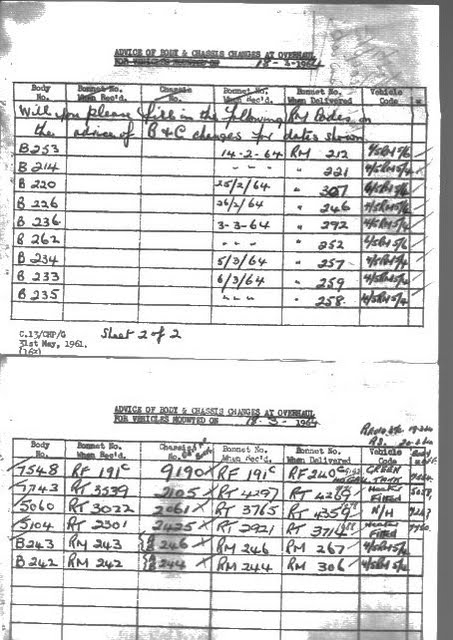 ADVICE OF BODY & CHASSIS CHANGES AT OVERHAUL
FOR VEHICLES MOUNTED ON 18-3-1964
Body No. Bonnet No. When Rec'd. Chassis No. Bonnet No. When Rec'd. Bonnet No. When Delivered Vehicle Code
Will you please fill in the following RM Bodies on
the advice of B & C changes for dates shown
B 253 14-2-64 RM 212 4/5RM5/6
B 214 " " " " 221 4/5RM5/4
B 220 25/2/64 " 307 5/6
B 226 26/2/64 " 246 4/5RM5/6
B 236 3-3-64 " 292 4/5RM5/4
B 262 " " " " 252 4/5RM5/6
B 234 5/3/64 " 257 4/5RM5/4
B 233 6/3/64 " 259 4/5RM5/6
B 235 " " " " 258 4/5RM5/4
C.13/CMP/G Sheet 2 of 2
31st May, 1961.
(16x)
ADVICE OF BODY & CHASSIS CHANGES AT OVERHAUL
FOR VEHICLES MOUNTED ON 18-3-1964
Body No. Bonnet No. When Rec'd. Chassis No. Bonnet No. When Rec'd. Bonnet No. When Delivered Vehicle Code
7548 RF 191c 9190 RF 191c RF 240c GREEN
7743 RT 3539 2105 RT 4297 RT 4269 Heater Fitted
5060 RT 3022 2061 RT 3765 RT 4359 N/H
5104 RT 2301 2425 RT 2921 RT 3714 Heater Fitted
B243 RM 243 B 246 RM 246 RM 267 4/5RM5/4
B242 RM 242 B 244 RM 244 RM 306 4/5RM5/4